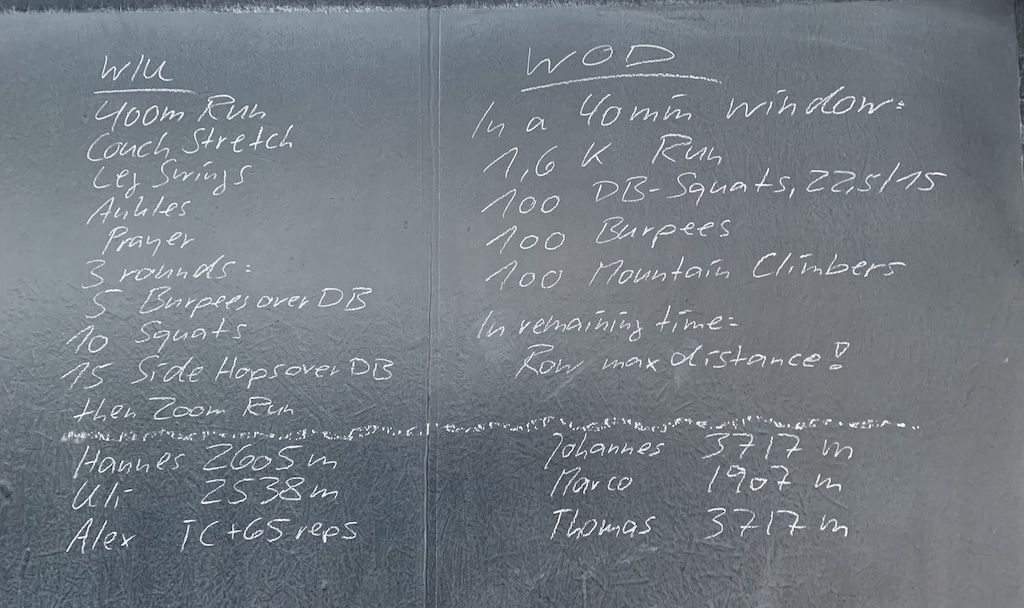 W/U
400m Run
Couch Stretch
Leg Swings
Ankles
Prayer
3 rounds:
5 Burpees over DB
10 Squats
15 Side Hops over DB
then 200m Run
WOD
In a 40min window:
1,6 K Run
100 DB-Squats, 22,5/15
100 Burpees
100 Mountain Climbers
In remaining time:
Row max distance!
Hannes 2605 m
Uli 2538 m
Alex TC+65 reps
Johannes 3717 m
Marco 1907 m
Thomas 3717 m